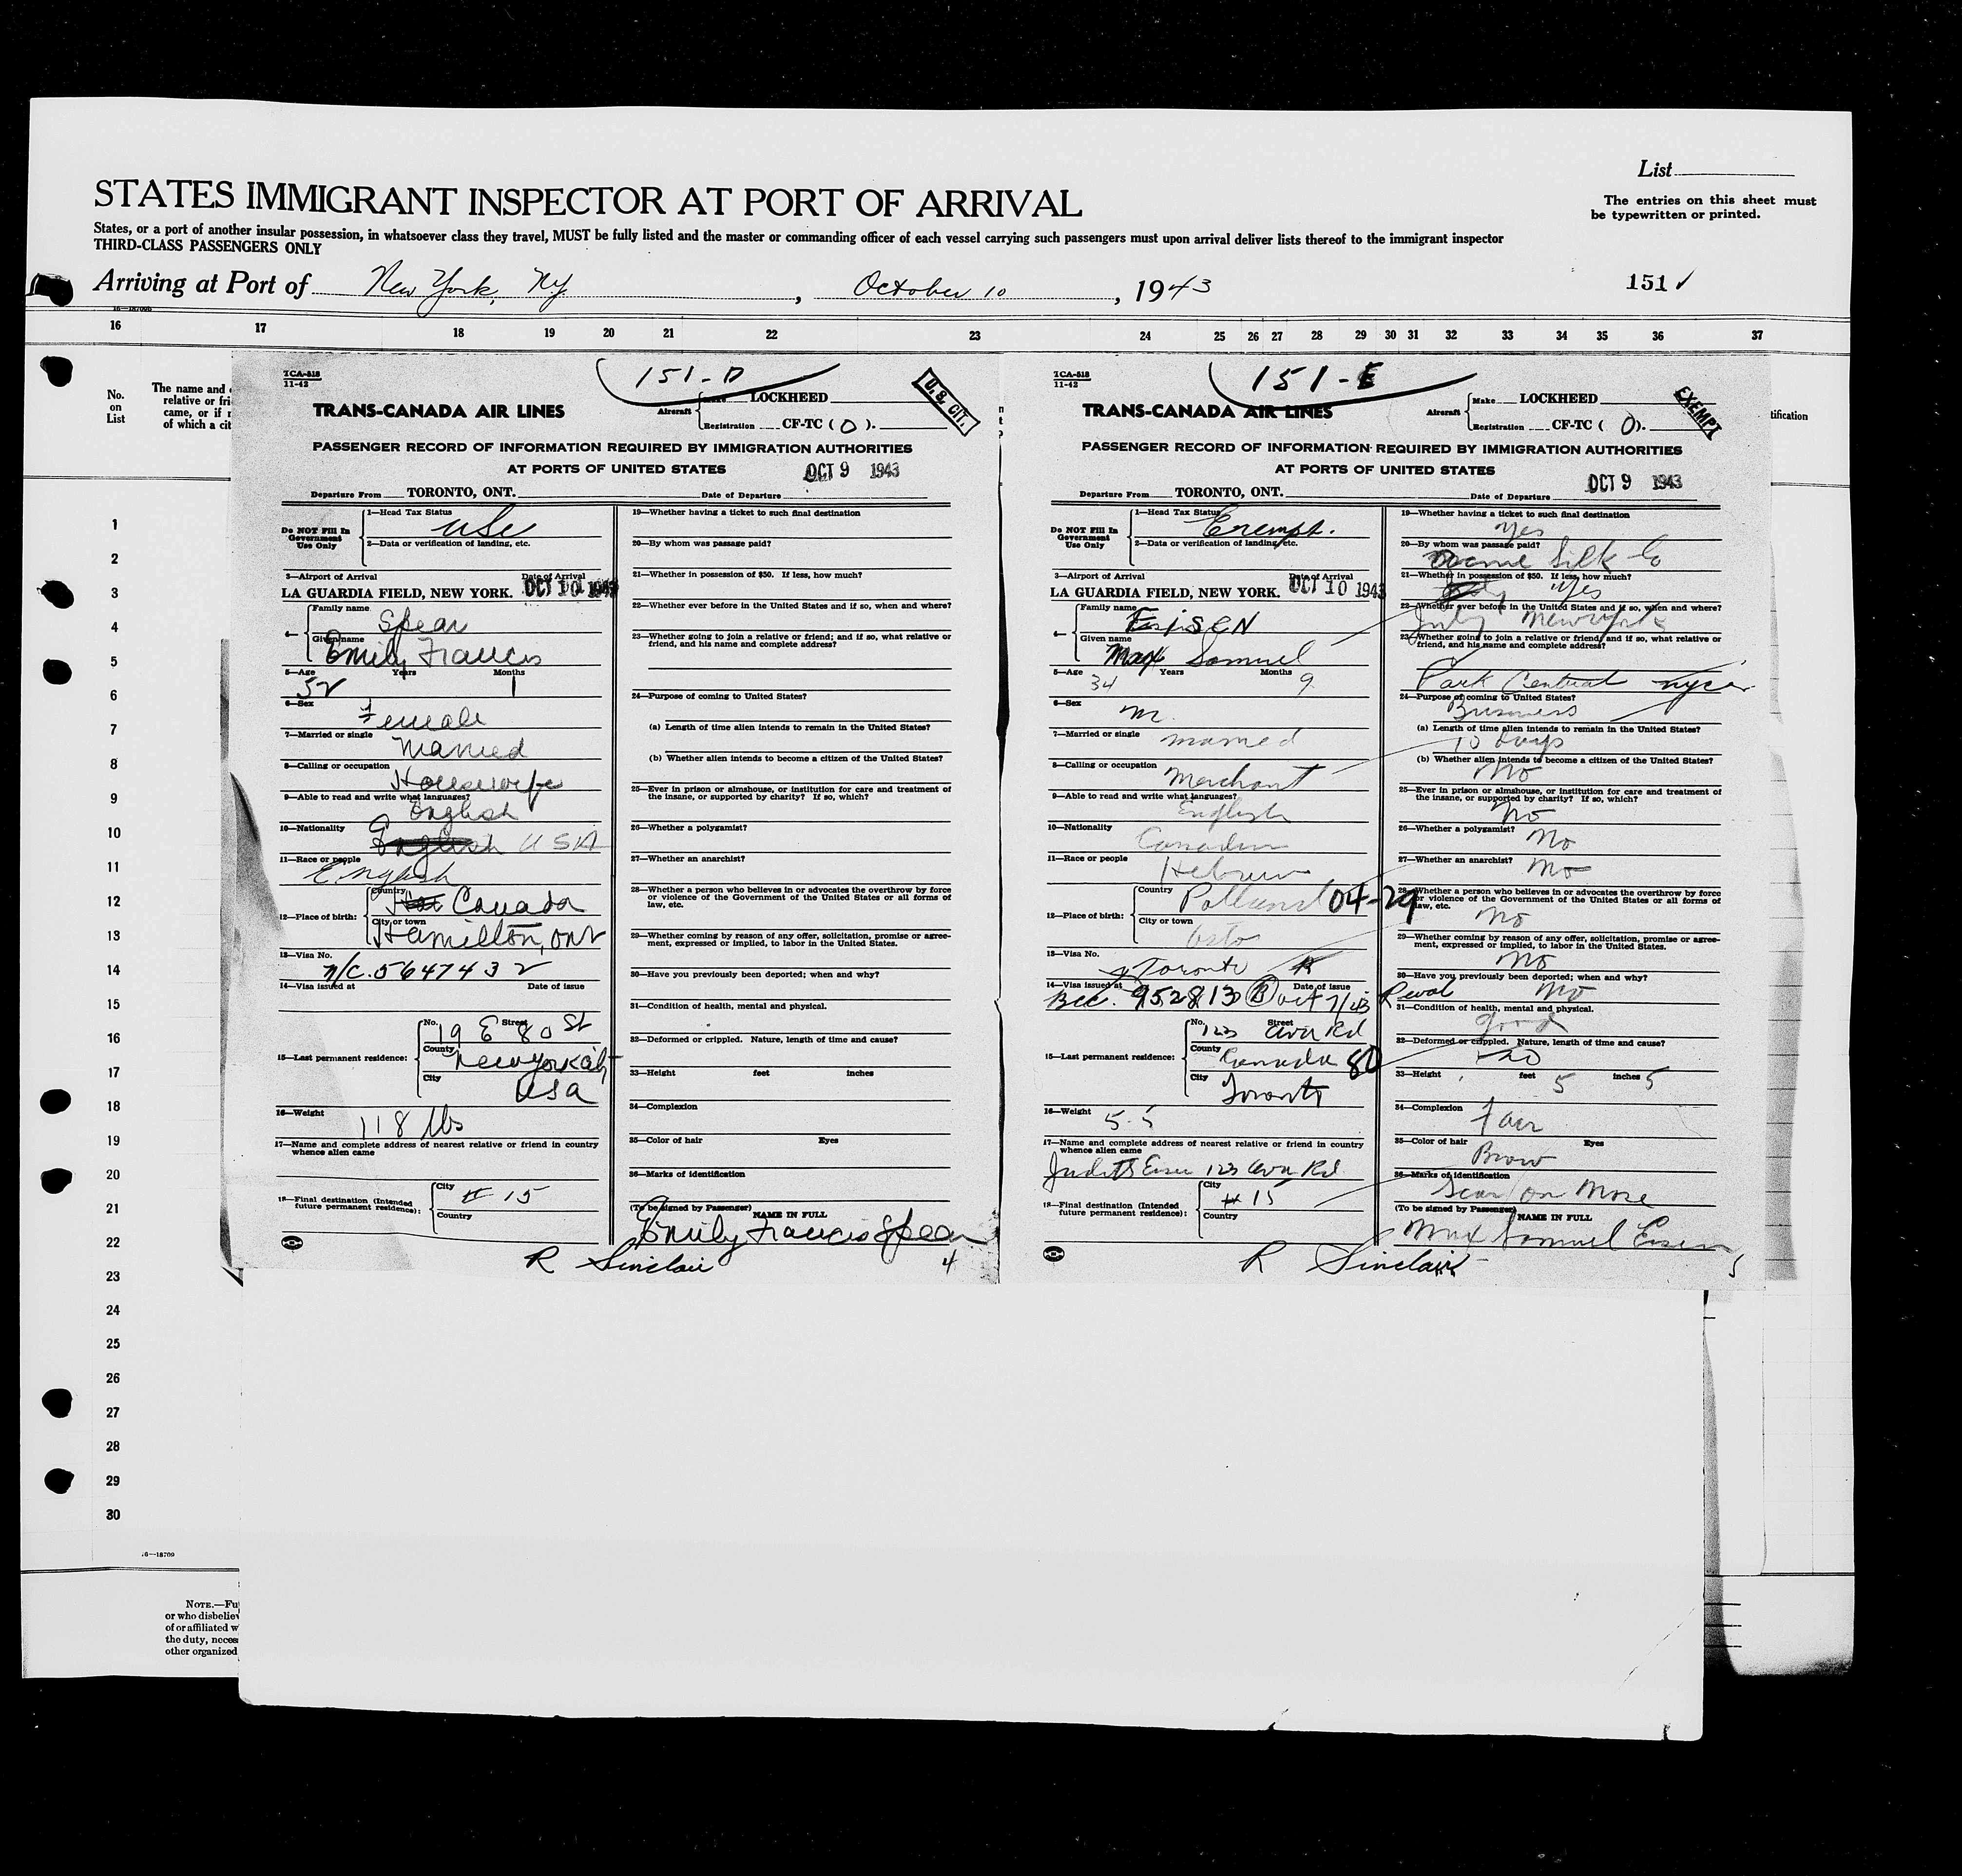 List
STATES IMMIGRANT INSPECTOR AT PORT OF ARRIVAL
The entries on this sheet must
be typewritten or printed.
States, or a port of another insular possession, in whatsoever class they travel, MUST be fully listed and the master or commanding officer of each vessel carrying such passengers must upon arrival deliver lists thereof to the immigrant inspector
THIRD-CLASS PASSENGERS ONLY
Arriving at Port of New York, NY, October 10, 1943
151
16 17 18 19 20 21 22 23 24 25 26 27 28 29 30 31 32 33 34 35 36 37
No.
on
List
The name and
relative or fri
came, or if r
of which a cit
tification
1
2
3
4
5
6
7
8
9
10
11
12
13
14
15
16
17
18
19
20
21
22
23
24
25
26
27
28
29
30
16—18709
NOTE.—Fu
or who disbeliev
of or affiliated w
the duty, neces
other organized
TCA-518
11-42
151-D
U.S. CIT.
TRANS-CANADA AIR LINES
Aircraft
Make LOCKHEED
Registration CF-TC ( O ).
PASSENGER RECORD OF INFORMATION REQUIRED BY IMMIGRATION AUTHORITIES
AT PORTS OF UNITED STATES
OCT 9 1943
Departure From TORONTO, ONT. Date of Departure
Do NOT Fill In
Government
Use Only
1—Head Tax Status
USC
2—Data or verification of landing, etc.
3—Airport of Arrival Date of Arrival
LA GUARDIA FIELD, NEW YORK. OCT 10 1943
4—
Family name
Spear
Given name
Emily Francis
5—Age Years Months
52 1
6—Sex
Female
7—Married or single
Married
8—Calling or occupation
Housewife
9—Able to read and write what languages?
English
10—Nationality
English USA
11—Race or people
English
12—Place of birth:
Country
Canada
City or town
Hamilton, Ont
13—Visa No.
N/C. 5647432
14—Visa issued at Date of issue
15—Last permanent residence:
No. Street
19 E 80 St
County
New York City
City
USA
16—Weight
118 lbs
17—Name and complete address of nearest relative or friend in country
whence alien came
18—Final destination (Intended
future permanent residence):
City
# 15
Country
19—Whether having a ticket to such final destination
20—By whom was passage paid?
21—Whether in possession of $50. If less, how much?
22—Whether ever before in the United States and if so, when and where?
23—Whether going to join a relative or friend; and if so, what relative or
friend, and his name and complete address?
24—Purpose of coming to United States?
(a) Length of time alien intends to remain in the United States?
(b) Whether alien intends to become a citizen of the United States?
25—Ever in prison or almshouse, or institution for care and treatment of
the insane, or supported by charity? If so, which?
26—Whether a polygamist?
27—Whether an anarchist?
28—Whether a person who believes in or advocates the overthrow by force
or violence of the Government of the United States or all forms of
law, etc.
29—Whether coming by reason of any offer, solicitation, promise or agree-
ment, expressed or implied, to labor in the United States.
30—Have you previously been deported; when and why?
31—Condition of health, mental and physical.
32—Deformed or crippled. Nature, length of time and cause?
33—Height feet inches
34—Complexion
35—Color of hair Eyes
36—Marks of identification
(To be signed by Passenger) NAME IN FULL
Emily Francis Spear
R Sinclair
4
TCA-518
11-42
151-E
EXEMPT
TRANS-CANADA AIR LINES
Aircraft
Make LOCKHEED
Registration CF-TC ( O ).
PASSENGER RECORD OF INFORMATION REQUIRED BY IMMIGRATION AUTHORITIES
AT PORTS OF UNITED STATES
OCT 9 1943
Departure From TORONTO, ONT. Date of Departure
Do NOT Fill In
Government
Use Only
1—Head Tax Status
Exempt.
2—Data or verification of landing, etc.
3—Airport of Arrival Date of Arrival
LA GUARDIA FIELD, NEW YORK. OCT 10 1943
4—
Family name
EISEN
Given name
Max Samuel
5—Age Years Months
34 9
6—Sex
M.
7—Married or single
married
8—Calling or occupation
Merchant
9—Able to read and write what languages?
English
10—Nationality
Canadian
11—Race or people
Hebrew
12—Place of birth:
Country
Polland 04-29
City or town
13—Visa No.
Toronto
14—Visa issued at Date of issue
BCC. 952813 B Oct 7/43
15—Last permanent residence:
No. Street
123 Ava Rd
County
Canada 80
City
Toronto
16—Weight
5.5
17—Name and complete address of nearest relative or friend in country
whence alien came
Judith Eisen 123 Ava Rd
18—Final destination (Intended
future permanent residence):
City
# 15
Country
19—Whether having a ticket to such final destination
Yes
20—By whom was passage paid?
Silk Co
21—Whether in possession of $50. If less, how much?
Yes
22—Whether ever before in the United States and if so, when and where?
July New York
23—Whether going to join a relative or friend; and if so, what relative or
friend, and his name and complete address?
Park Central nyc
24—Purpose of coming to United States?
Business
(a) Length of time alien intends to remain in the United States?
10 days
(b) Whether alien intends to become a citizen of the United States?
No
25—Ever in prison or almshouse, or institution for care and treatment of
the insane, or supported by charity? If so, which?
No
26—Whether a polygamist?
No
27—Whether an anarchist?
No
28—Whether a person who believes in or advocates the overthrow by force
or violence of the Government of the United States or all forms of
law, etc.
No
29—Whether coming by reason of any offer, solicitation, promise or agree-
ment, expressed or implied, to labor in the United States.
No
30—Have you previously been deported; when and why?
No
31—Condition of health, mental and physical.
good
32—Deformed or crippled. Nature, length of time and cause?
no
33—Height feet 5 inches 5
34—Complexion
Fair
35—Color of hair Eyes
Brow
36—Marks of identification
Scar on Nose
(To be signed by Passenger) NAME IN FULL
Max Samuel Eisen
R Sinclair
5